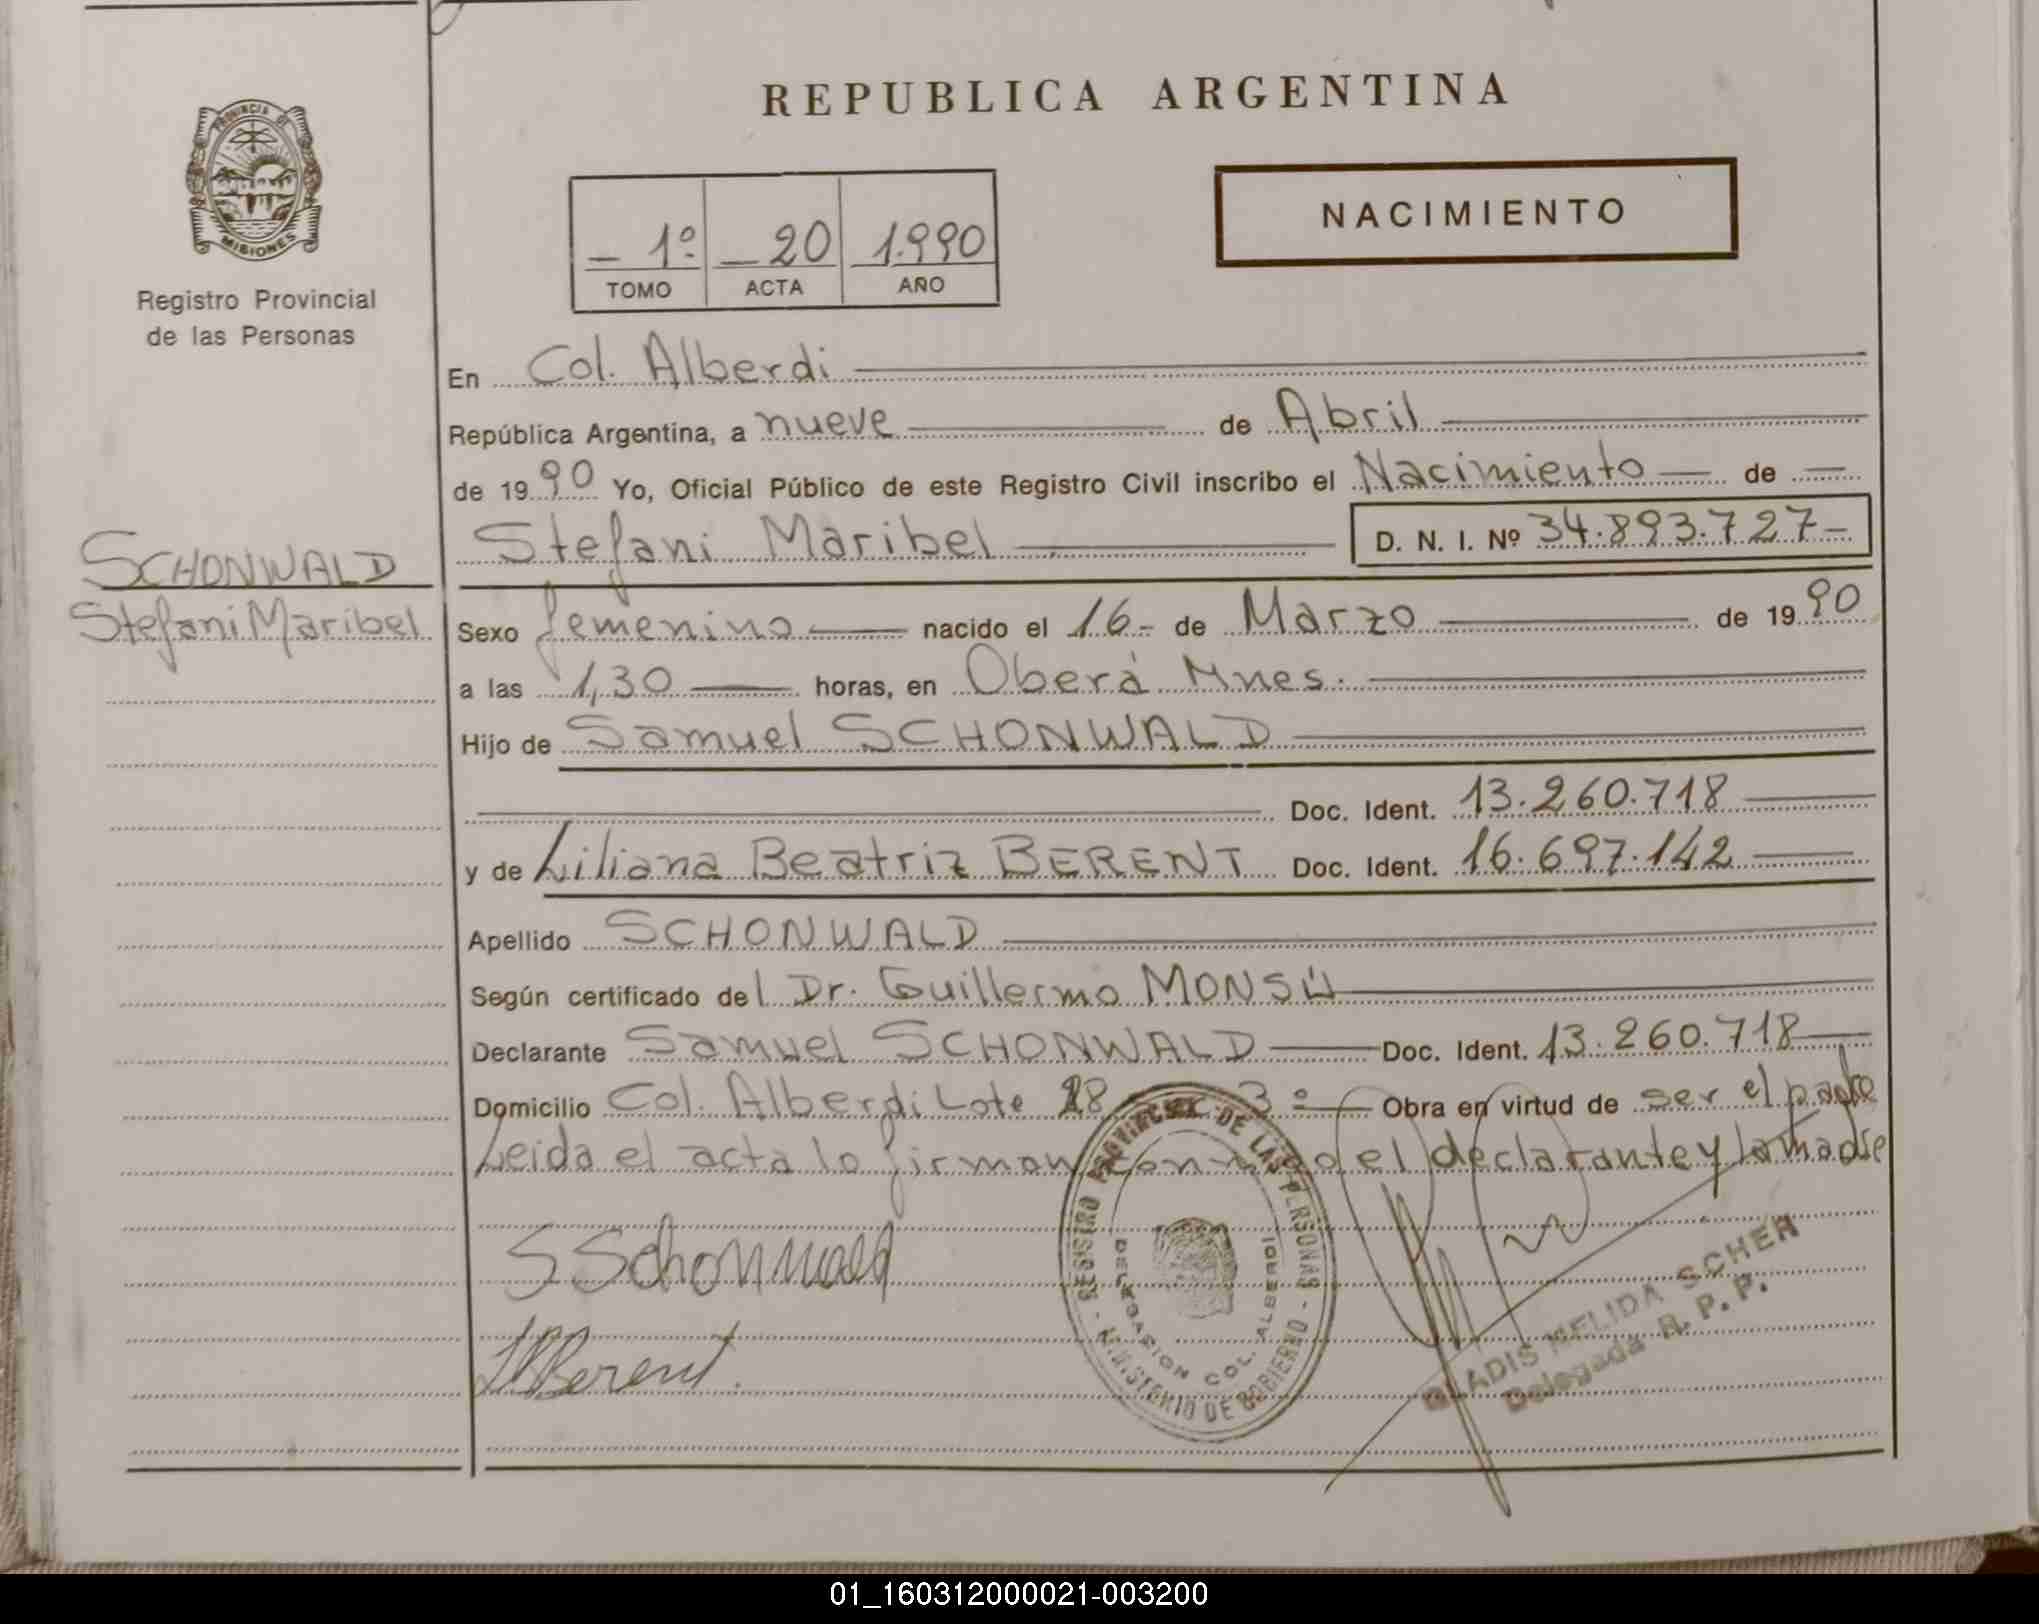 REPUBLICA ARGENTINA
PROVINCIA DE
MISIONES
Registro Provincial
de las Personas
NACIMIENTO
1º 20 1.990
TOMO ACTA AÑO
En Col. Alberdi
República Argentina, a nueve de Abril
de 1990 Yo, Oficial Público de este Registro Civil inscribo el Nacimiento de
SCHONWALD
Stefani Maribel
Stefani Maribel D. N. I. Nº 34.893.727-
Sexo femenino nacido el 16- de Marzo de 1990
a las 1,30 horas, en Oberá Mnes.
Hijo de Samuel SCHONWALD
Doc. Ident. 13.260.718
y de Liliana Beatriz BERENT Doc. Ident. 16.697.142
Apellido SCHONWALD
Según certificado del Dr. Guillermo MONSÚ
Declarante Samuel SCHONWALD Doc. Ident. 13.260.718
Domicilio Col. Alberdi Lote 3º Obra en virtud de ser el padre
Leida el acta lo firman conmigo el declarante y la madre
S Schonwald
LBBerent.
REGISTRO PROVINCIAL DE LAS PERSONAS
DELEGACION COL. ALBERDI
MINISTERIO DE GOBIERNO
GLADIS MELIDA SCHER
Delegada R. P. P.
01_160312000021-003200